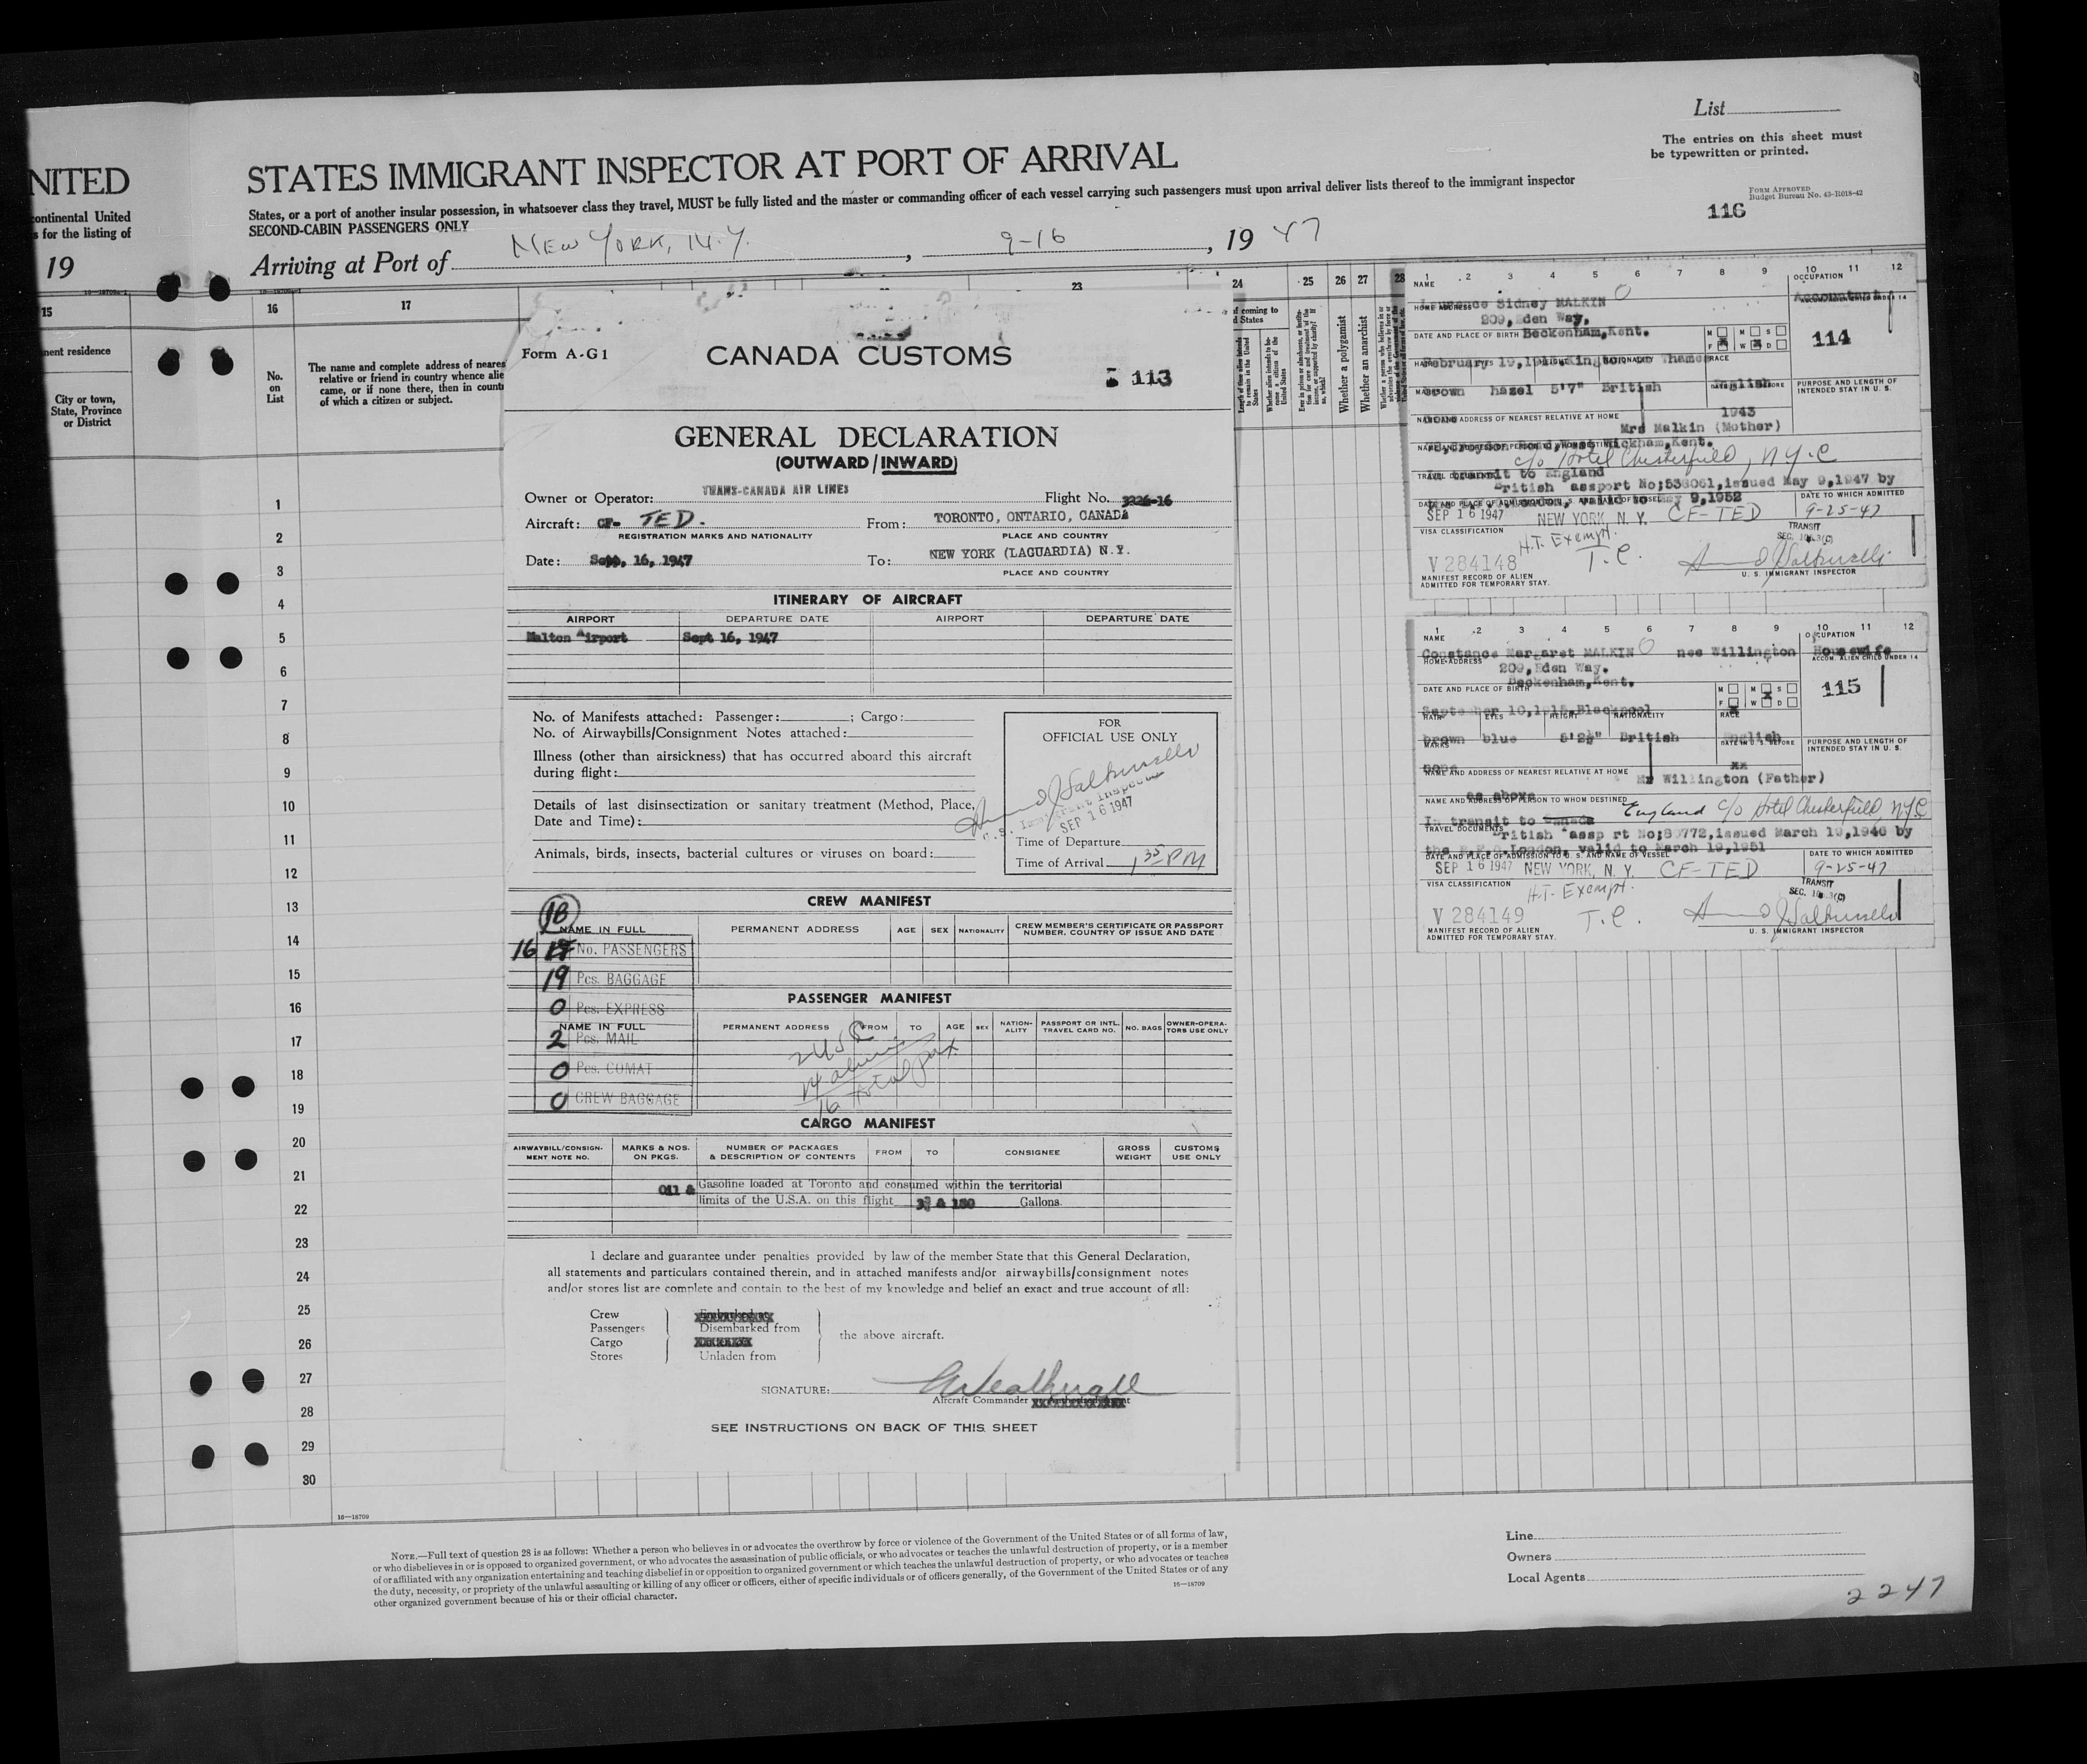 NITED
continental United
s for the listing of
19
15
nent residence
City or town,
State, Province
or District
List
The entries on this sheet must
be typewritten or printed.
STATES IMMIGRANT INSPECTOR AT PORT OF ARRIVAL
States, or a port of another insular possession, in whatsoever class they travel, MUST be fully listed and the master or commanding officer of each vessel carrying such passengers must upon arrival deliver lists thereof to the immigrant inspector
SECOND-CABIN PASSENGERS ONLY
Form Approved
Budget Bureau No. 43-R018-42
116
Arriving at Port of NEW YORK, N.Y., 9-16, 1947
16
17
23
24
25
26
27
28
No.
on
List
The name and complete address of neares
relative or friend in country whence alie
came, or if none there, then in countr
of which a citizen or subject.
f coming to
d States
Whether a polygamist
Whether an anarchist
1
2
3
4
5
6
7
8
9
10
11
12
13
14
15
16
17
18
19
20
21
22
23
24
25
26
27
28
29
30
Form A-G1
CANADA CUSTOMS
113
GENERAL DECLARATION
(OUTWARD / INWARD)
Owner or Operator: TRANS-CANADA AIR LINES Flight No. 3226-16
Aircraft: CF- TED. From: TORONTO, ONTARIO, CANADA
REGISTRATION MARKS AND NATIONALITY PLACE AND COUNTRY
Date: Sept. 16, 1947 To: NEW YORK (LAGUARDIA) N.Y.
PLACE AND COUNTRY
ITINERARY OF AIRCRAFT
AIRPORT DEPARTURE DATE AIRPORT DEPARTURE DATE
Malton Airport Sept 16, 1947
No. of Manifests attached: Passenger: ; Cargo:
No. of Airwaybills/Consignment Notes attached:
Illness (other than airsickness) that has occurred aboard this aircraft
during flight:
Details of last disinsectization or sanitary treatment (Method, Place,
Date and Time):
Animals, birds, insects, bacterial cultures or viruses on board:
FOR
OFFICIAL USE ONLY
U.S. Immigrant Inspector
SEP 16 1947
Time of Departure
Time of Arrival 1 35 PM
CREW MANIFEST
18
NAME IN FULL PERMANENT ADDRESS AGE SEX NATIONALITY CREW MEMBER'S CERTIFICATE OR PASSPORT
NUMBER, COUNTRY OF ISSUE AND DATE
16 17 No. PASSENGERS
19 Pcs. BAGGAGE
PASSENGER MANIFEST
0 Pcs. EXPRESS
NAME IN FULL PERMANENT ADDRESS FROM TO AGE SEX NATION-
ALITY PASSPORT OR INTL.
TRAVEL CARD NO. NO. BAGS OWNER-OPERA-
TORS USE ONLY
2 Pcs. MAIL
0 Pcs. COMAT
0 CREW BAGGAGE
2 USC
14 aliens
16 total pax
CARGO MANIFEST
AIRWAYBILL/CONSIGN-
MENT NOTE NO. MARKS & NOS.
ON PKGS. NUMBER OF PACKAGES
& DESCRIPTION OF CONTENTS FROM TO CONSIGNEE GROSS
WEIGHT CUSTOMS
USE ONLY
Oil & Gasoline loaded at Toronto and consumed within the territorial
limits of the U.S.A. on this flight & 180 Gallons.
I declare and guarantee under penalties provided by law of the member State that this General Declaration,
all statements and particulars contained therein, and in attached manifests and/or airwaybills/consignment notes
and/or stores list are complete and contain to the best of my knowledge and belief an exact and true account of all:
Crew
Passengers Disembarked from
Cargo the above aircraft.
Stores Unladen from
SIGNATURE:
Aircraft Commander
SEE INSTRUCTIONS ON BACK OF THIS SHEET
1 2 3 4 5 6 7 8 9 10 11 12
NAME OCCUPATION
Laurence Sidney MALKIN Accountant
HOME ADDRESS
209, Eden Way,
Beckenham, Kent.
DATE AND PLACE OF BIRTH
114
February 19, Kingston Thames
NATIONALITY RACE
brown hazel 5'7" British English
PURPOSE AND LENGTH OF
INTENDED STAY IN U. S.
1943
NAME AND ADDRESS OF NEAREST RELATIVE AT HOME
Mrs Malkin (Mother)
Wickham, Kent.
c/o Hotel Chesterfield, N.Y.C
In transit to England
British Passport No; 538061, issued May 9, 1947 by
May 9, 1952
DATE TO WHICH ADMITTED
SEP 16 1947 NEW YORK, N. Y. CF-TED 9-25-47
VISA CLASSIFICATION H.T. Exempt. TRANSIT
SEC. 3(C)
V 284148 T.C.
MANIFEST RECORD OF ALIEN
ADMITTED FOR TEMPORARY STAY.
U. S. IMMIGRANT INSPECTOR
1 2 3 4 5 6 7 8 9 10 11 12
NAME OCCUPATION
Constance Margaret MALKIN nee Willington Housewife
HOME ADDRESS ACCOM. ALIEN CHILD UNDER 14
209, Eden Way.
Beckenham, Kent.
DATE AND PLACE OF BIRTH
115
September 10, Blackpool
HAIR EYES HEIGHT NATIONALITY RACE
brown blue 5'2½" British English
MARKS DATE IN U. S. BEFORE PURPOSE AND LENGTH OF
INTENDED STAY IN U. S.
none xx
NAME AND ADDRESS OF NEAREST RELATIVE AT HOME Mr Willington (Father)
as above
NAME AND ADDRESS OF PERSON TO WHOM DESTINED
In transit to Canada England c/o Hotel Chesterfield, NYC
TRAVEL DOCUMENTS
British Passp rt No; 80772, issued March 19, 1946 by
the London, valid to March 19, 1951
DATE AND PLACE OF ADMISSION TO U. S. AND NAME OF VESSEL DATE TO WHICH ADMITTED
SEP 16 1947 NEW YORK, N. Y. CF-TED 9-25-47
VISA CLASSIFICATION H.T. Exempt. TRANSIT
SEC. 3(C)
V 284149 T.C.
MANIFEST RECORD OF ALIEN
ADMITTED FOR TEMPORARY STAY.
U. S. IMMIGRANT INSPECTOR
16—18709
Note.—Full text of question 28 is as follows: Whether a person who believes in or advocates the overthrow by force or violence of the Government of the United States or of all forms of law,
or who disbelieves in or is opposed to organized government, or who advocates the assassination of public officials, or who advocates or teaches the unlawful destruction of property, or is a member
of or affiliated with any organization entertaining and teaching disbelief in or opposition to organized government or which teaches the unlawful destruction of property, or who advocates or teaches
the duty, necessity, or propriety of the unlawful assaulting or killing of any officer or officers, either of specific individuals or of officers generally, of the Government of the United States or of any
other organized government because of his or their official character.
16—18709
Line
Owners
Local Agents
2247